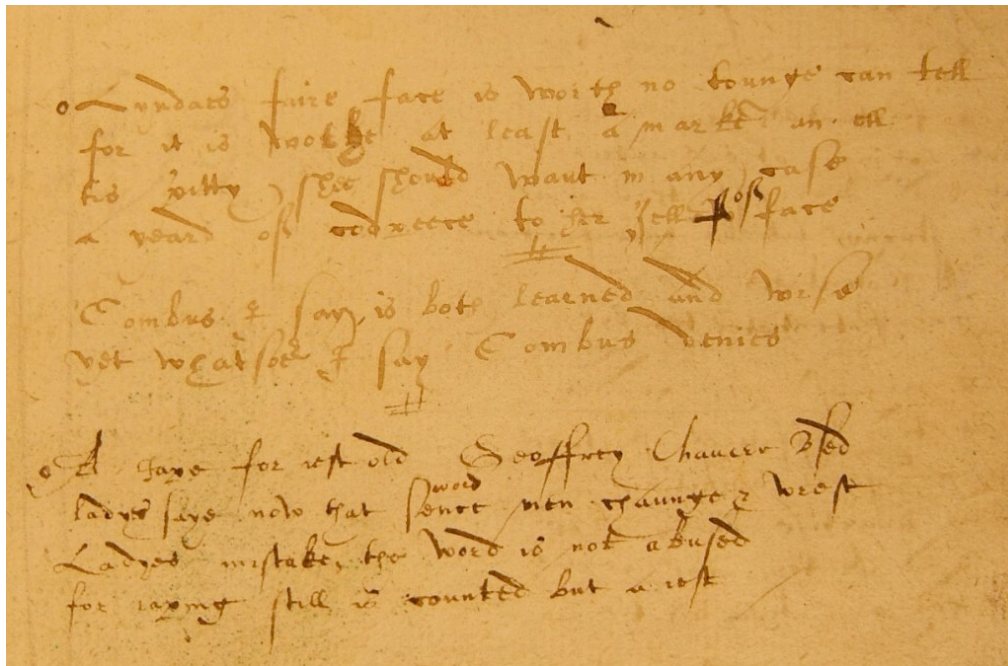 Lyndaes faire face is worth no tounge can tell
for it is worthe at least a marke an ell
tis pitty shee should want in any case
a yeard of codpeece to her ell of face
Combus I say is both learned and wise
yet whatsoer I say Combus denies
A Jape for iest old Geoffrey Chaucer vsed
ladyes saye now that word sence men chaunge & wrest
Ladyes mistake, the word is not abused
for iaping still is counted but a iest